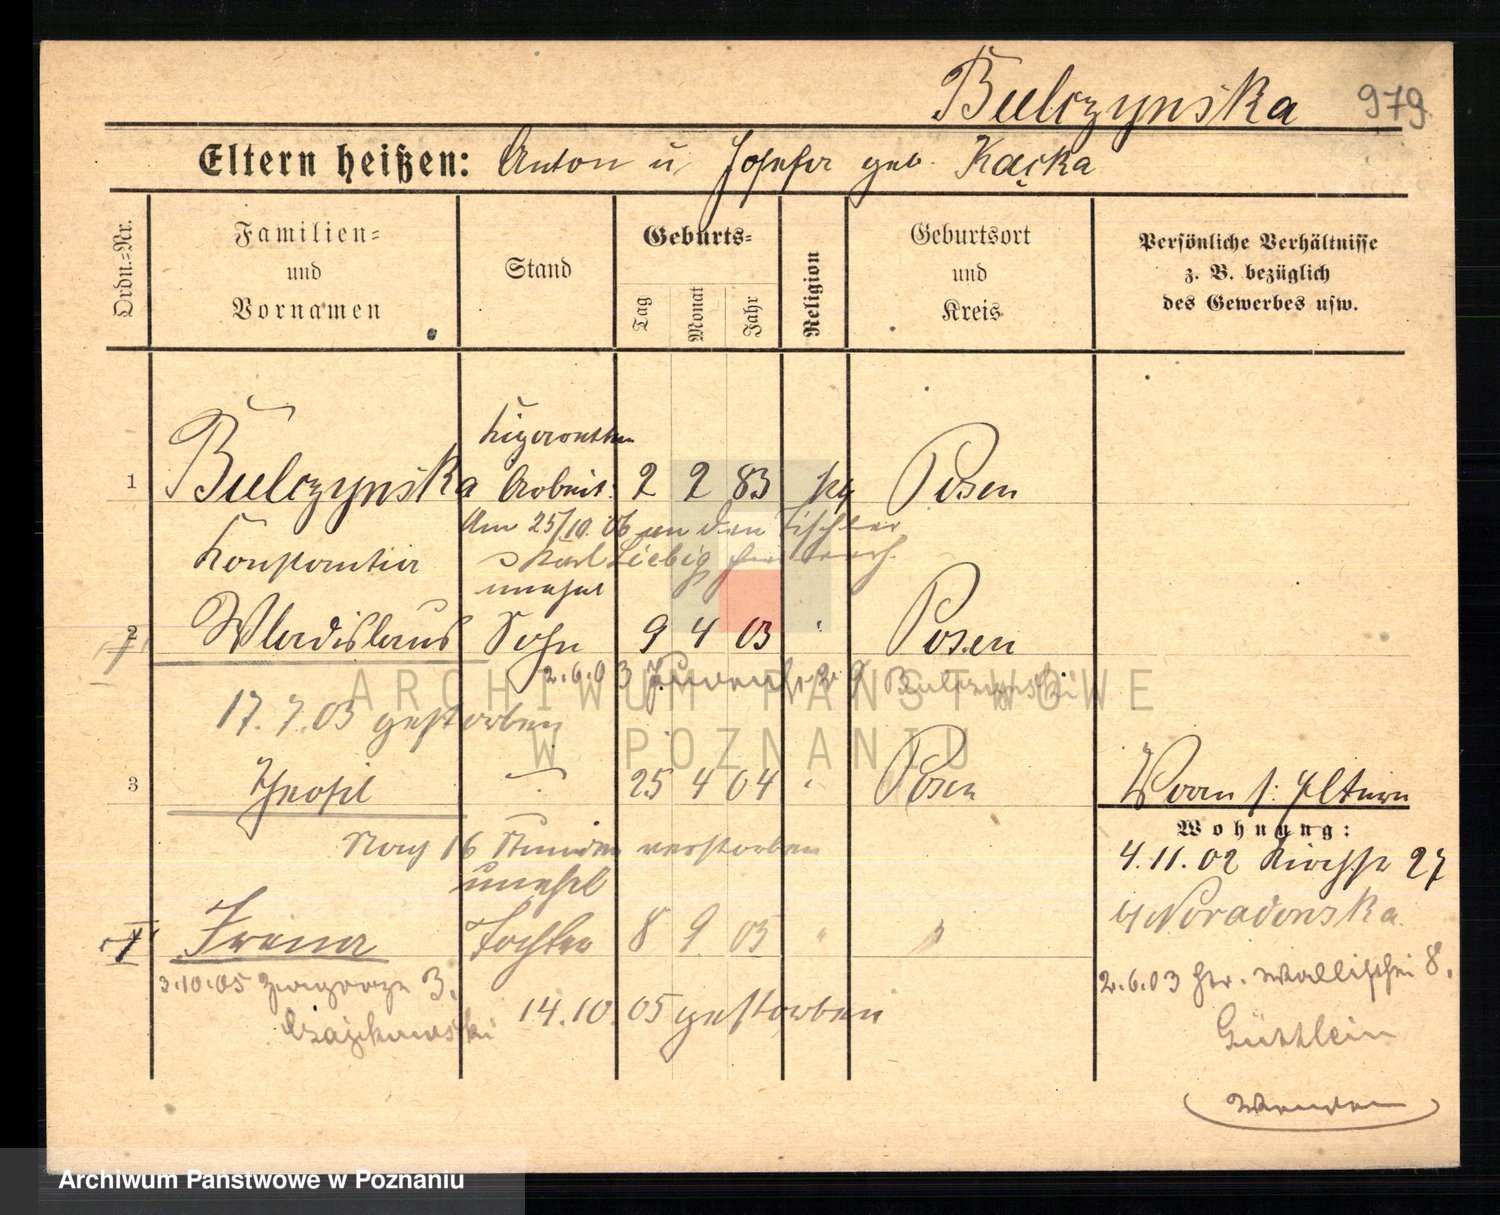 Bulczynska 979
Eltern heißen: Anton u. Josefa geb. Kacka
Ordn.=Nr.
Familien= und Vornamen
Stand
Geburts=
Tag Monat Jahr
Religion
Geburtsort und Kreis
Persönliche Verhältnisse
z. B. bezüglich
des Gewerbes usw.
Zigaretten
1 Bulczynska Arbeit. 2 2 83 kg Posen
Am 25/10. 06 an den Tischler
Konstantia Karl Liebig
unehel
2 Wladislaus Sohn 9 4 03 " Posen
2.6.03
17.7.03 gestorben
3 Theofil 25 4 04 " Posen
Wwe. s: Eltern
Nach 16 Stunden verstorben
Wohnung:
4.11.02 27
unehel
Irena Tochter 8 9 05 " "
b/ Noradonska
3.10.05 3.
2.6.03 Wallischei 8.
14.10.05 gestorben
Güttlein
Wenden
ARCHIWUM PAŃSTWOWE
W POZNANIU
Archiwum Państwowe w Poznaniu